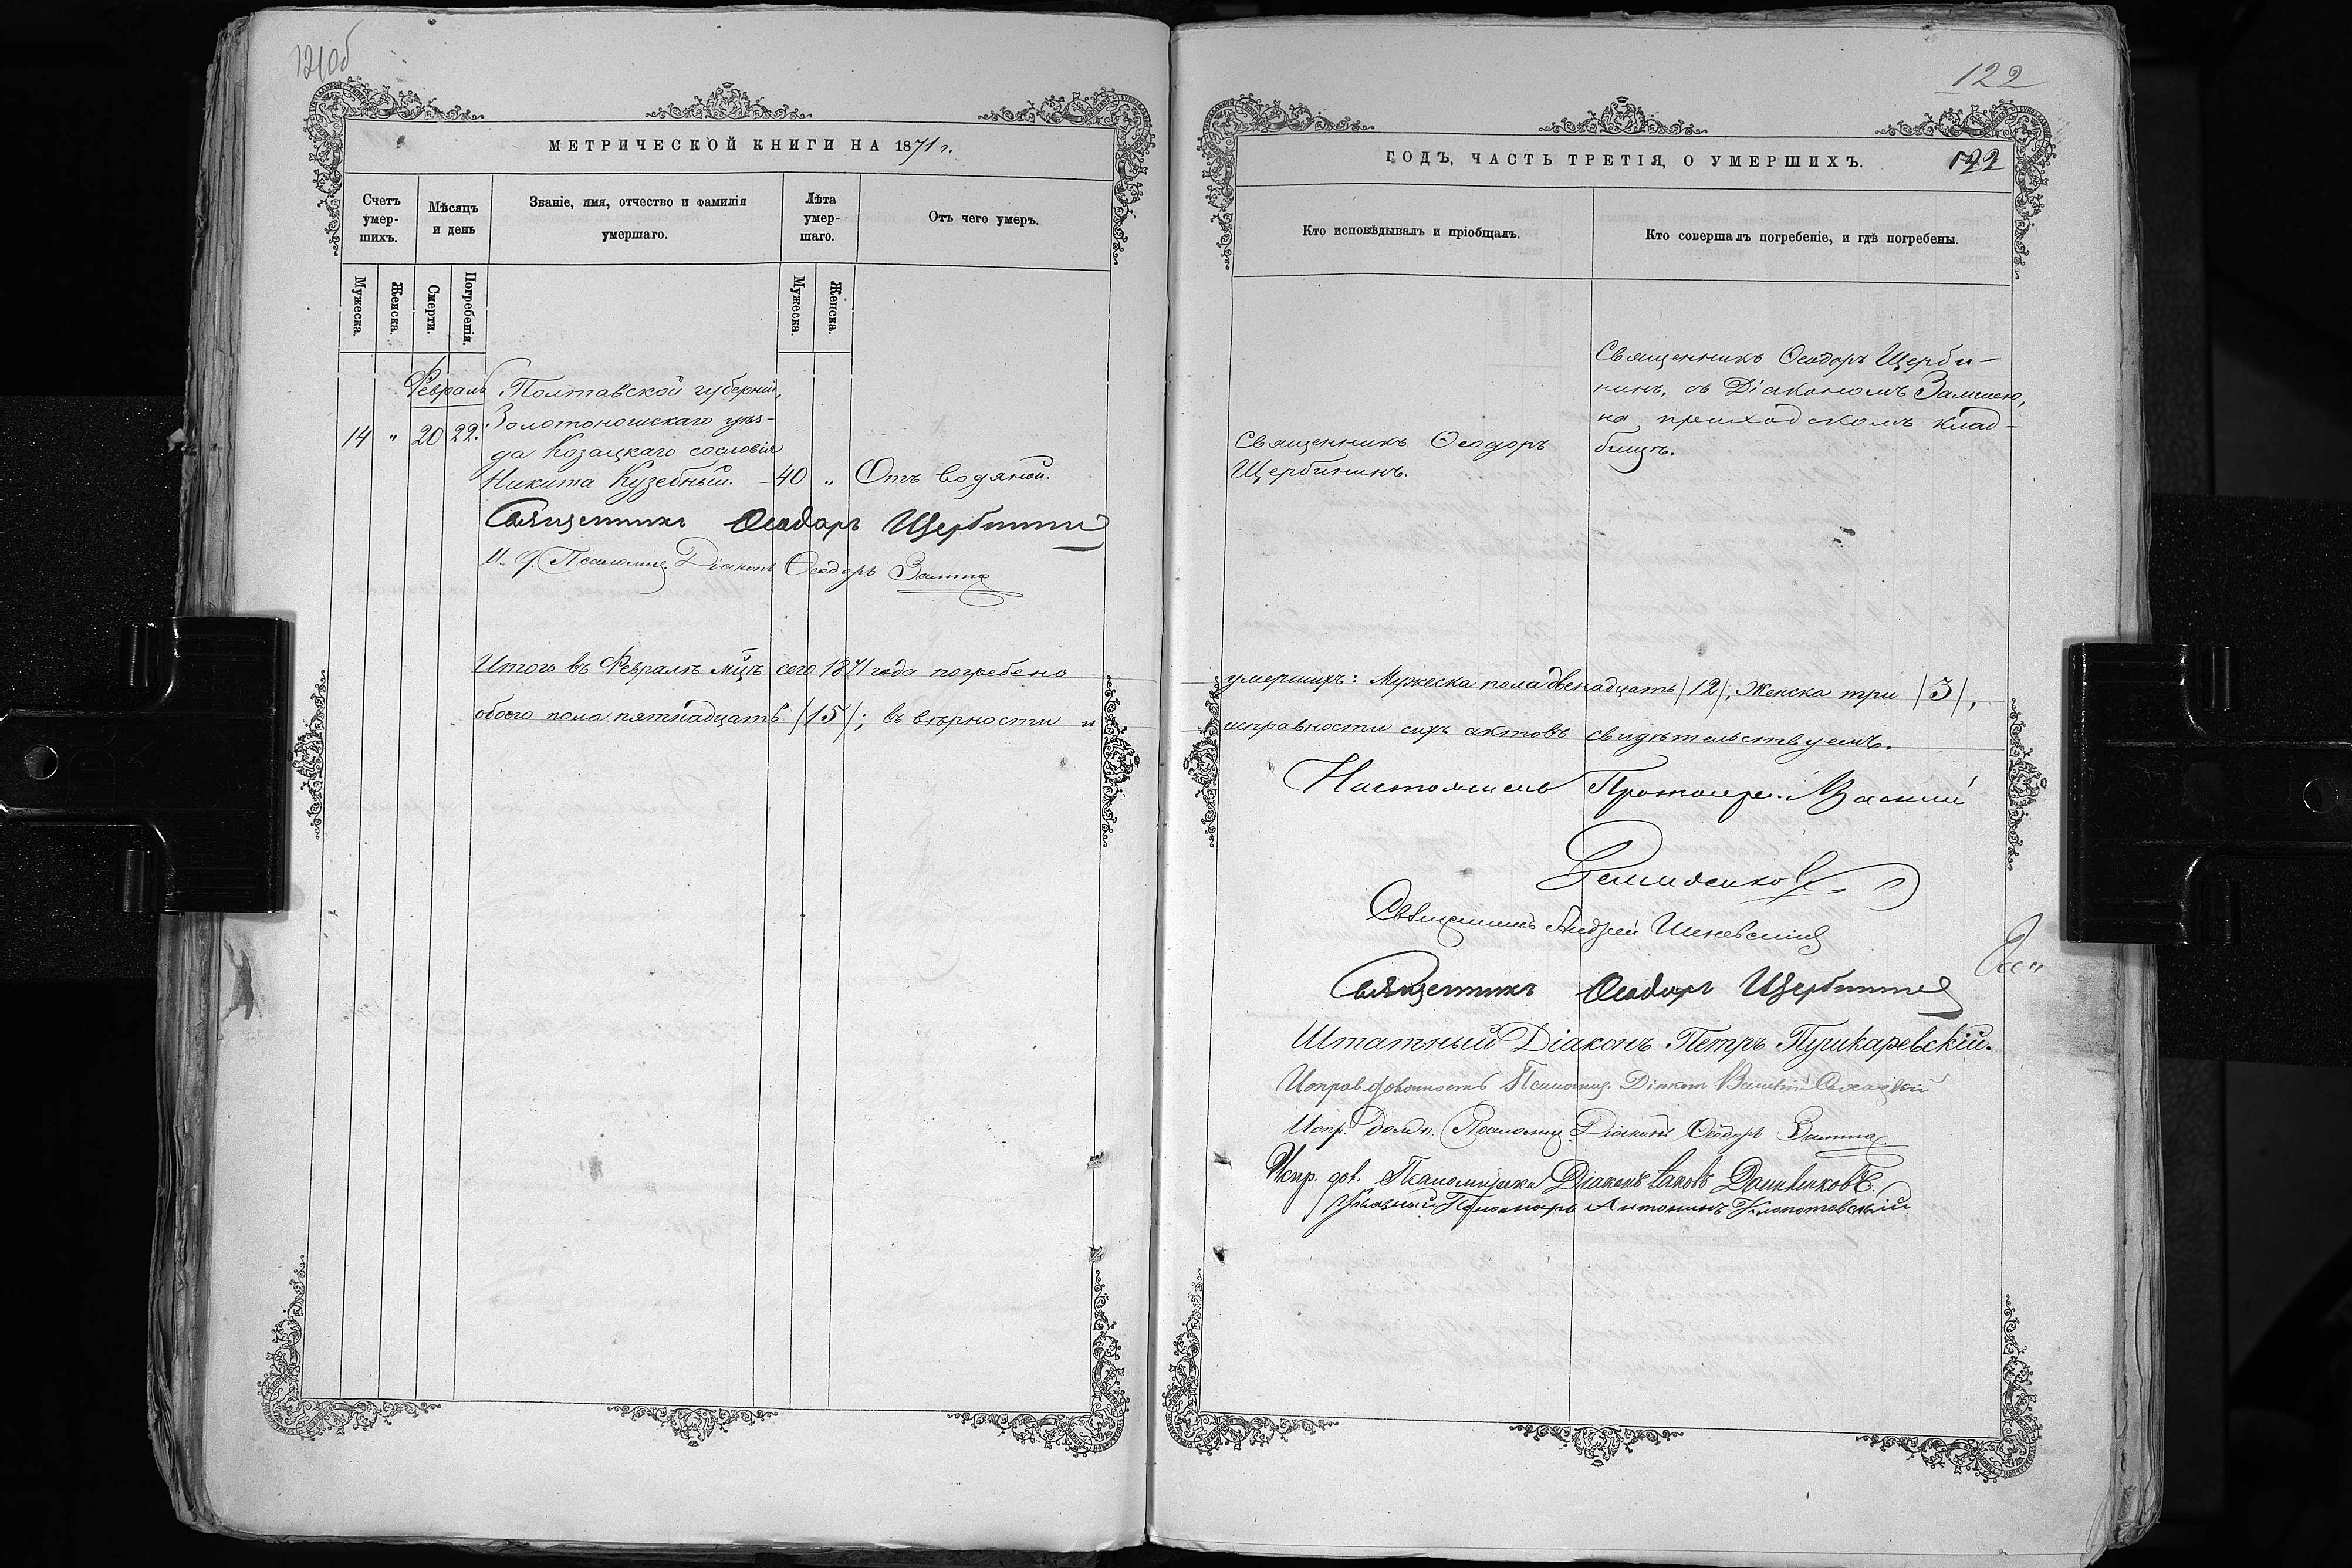 121об
МЕТРИЧЕСКОЙ КНИГИ НА 1871 г.
Счетъ умер-шихъ.
Мѣсяцъ и день
Званіе, имя, отчество и фамилія умершаго.
Лѣта умер-шаго.
Отъ чего умеръ.
Мужеска.
Женска.
Смерти.
Погребенія.
Мужеска.
Женска.
Февраль
Полтавской губерніи,
Золотоношскаго уѣз-
14 " 20 22.
да Козацкаго сословія
Никита Кузебный. - 40 " Отъ водяной.
Священникъ Ѳеодоръ Щербининъ
И. д. Псаломщ. Діаконъ Ѳеодоръ Замша
Итого въ Февралѣ мцѣ сего 1871 года погребено
обоего пола пятнадцать /15/; въ вѣрности и
122
ГОДЪ, ЧАСТЬ ТРЕТІЯ, О УМЕРШИХЪ.
122
Кто исповѣдывалъ и пріобщалъ.
Кто совершалъ погребеніе, и гдѣ погребены.
Священникъ Ѳеодоръ
Щербининъ.
Священникъ Ѳеодоръ Щерби-
нинъ, съ Діакономъ Замшею,
на приходскомъ клад-
бищѣ.
умершихъ: Мужеска пола двенадцать /12/, Женска три /3/,
исправности сихъ актовъ свидѣтельствуемъ.
Настоятель Протоіер. Василій
Священникъ Андрей
Священникъ Ѳеодоръ Щербининъ
Штатный Діаконъ Петръ Пушкаревскій.
Исправ. должность Псаломщ. Діаконъ
Испр. должн. Псаломщ. Діаконъ Ѳеодоръ Замша
Испр. дол. Псаломщика Діаконъ Іаковъ
Пономарь Антонинъ Клопотовскій